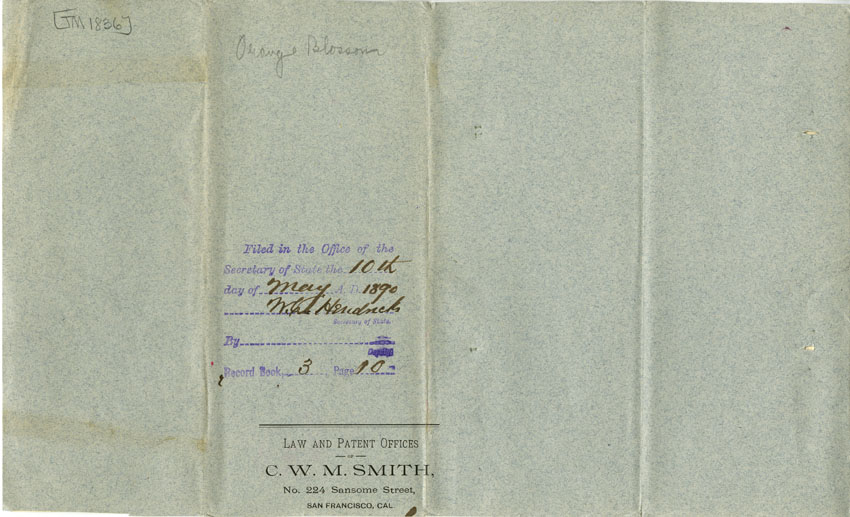 [TM 1836]
Orange Blossom
Filed in the Office of the
Secretary of State the 10th
day of May A.D. 1890
W.C. Hendricks
Secretary of State.
By
Deputy
Record Book 3 Page 10
LAW AND PATENT OFFICES
OF
C. W. M. SMITH,
No. 224 Sansome Street,
SAN FRANCISCO, CAL